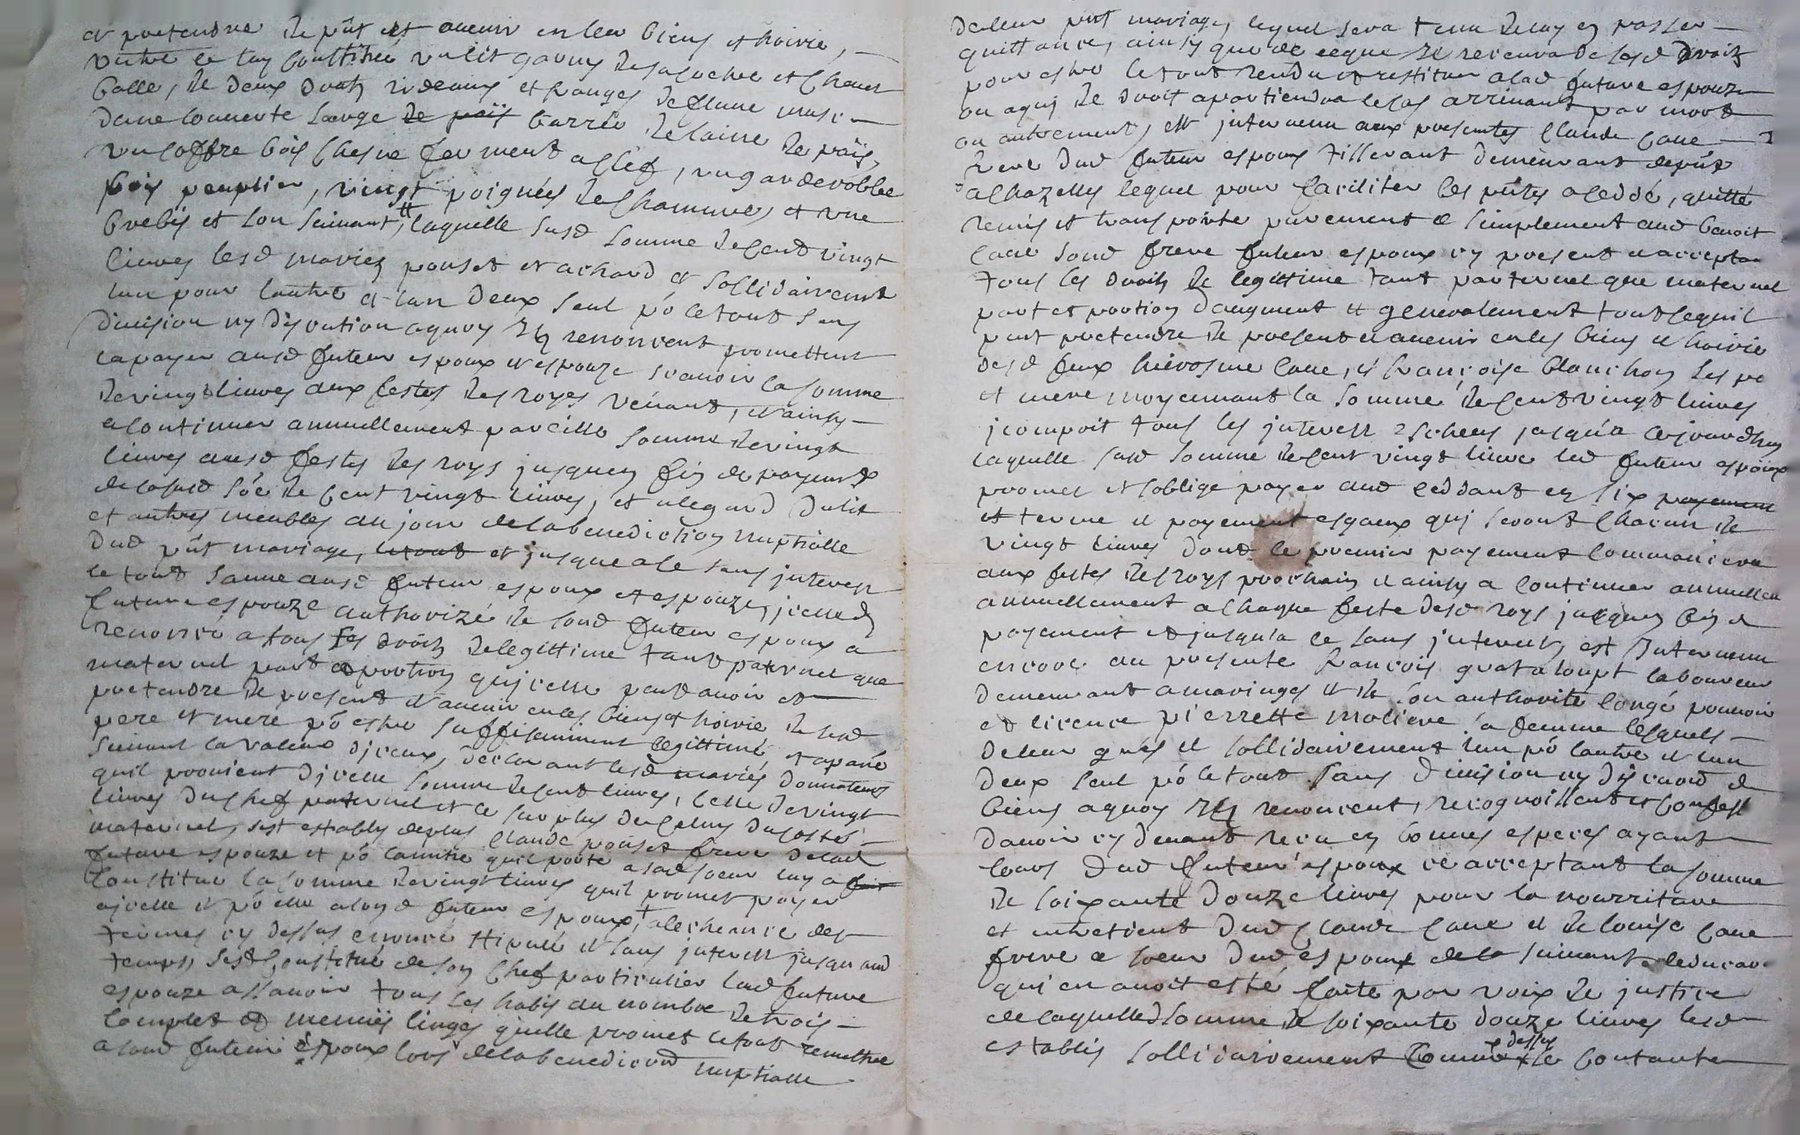 et pretendre de pñt et avenir en leur biens et hoirie,
outre ce luy constitué un lit garny de sa coche et
balle, de deux draps rideaux et franges de
d'une couverte sarge de païs barrée de laine de païs,
un coffre bois chesne fermant a clef, un garderobbe
bois peuplier, vingt poignées de chammve, et une
brebis et son suivant, laquelle susd somme de cent vingt
livres lesd mariez ponset et achard et sollidairement
lun pour lautre et lun deux seul pō le tout sans
division ny discution a quoy ilz renoncent promettent
la payer ausd futeur espoux et espouze scavoir la somme
de vingt livres aux festes des roys venant, et ainsy
a continuer annuellement pareille somme de vingt
livres ausd festes des roys jusques fin de payement
de lasusd sōe de cent vingt livres, et a legard du lit
et autres meubles au jour de la benediction nuptialle
dud pñt mariage, le tout et jusque a ce sans interest
le tout ausd futeur espoux et espouze, icelle
future espouze authorizée de sond futeur espoux a
renoncé a tous ses droits de legittime tant paternel que
maternel part et portion qu'icelle peut avoir et
pretendre de present et avenir en les biens et hoirie de sesd
pere et mere pō estre suffisamment legittimé et apané
suivant la valeur d'iceux, declarant lesd mariés donnateurs
quil provient d'icelle somme de cent livres, celle de vingt
livres du chef paternel et le surplus de celuy du costé
maternel, sest estably de plus Claude ponset frere de lad
future espouze et pō lamitié quil porte a sad soeur luy a fait
constitué la somme de vingt livres quil promet payer
a icelle et pō elle a sond futeur espoux, a lescheance des
termes cy dessus enoncé stipulé et sans interest jusquaud
temps, sest constitué de son chef particulier lad future
espouze assavoir tous ses habis au nombre de trois
complet et menus linges quelle promet le tout remettre
a sond futeur espoux lors de la benediction nuptialle
de leur pñt mariage, lequel sera tenu de luy en passer
quittance, ainsy que de ceque il recevra de sesd droits
pour estre le tout rendu et restitué a lad future espouze
ou a qui de droit apartiendra le cas arrivant par mort
ou autrement, est intervenu aux presentes Claude Cave
frere dud futeur espoux tisserant demeurant depñt
a Chazelles lequel pour faciliter les pñtes a ceddé, quitté
remis et transporté purement et simplement aud benoit
Cave sond frere futeur espoux cy present et acceptan
tous les droits de legittime tant paternel que maternel
part et portion daugment et generalement tout cequil
peut pretendre de present et avenir en les biens et hoirie
desd feux hierosme Cave, et françoise blanchon ses pe
et mere moyennant la somme de cent vingt livres
y compris tous les interest escheus jusqua cejourdhuy
laquelle susd somme de cent vingt livre led futeur espoux
promet et soblige payer aud ceddant en six payement
et terme et payement esgaux qui seront chacun de
vingt livres dont le premier payement commancera
aux festes des roys prochain et ainsy a continuer annuellem
annuellement a chaque feste desd roys jusques fin de
payement et jusqua ce sans interests, est intervenu
encore au presente françois grataloupt laboureur
demeurant a maringes et de son authorité congé pouvoir
et licence pierrette moliere sa femme lesquels
de leur grés et sollidairement lun pō lautre et lun
deux seul pō le tout sans division ny discution de
biens a quoy ilz renoncent, recognoissent et confess
davoir cy devant receu en bonnes especes ayant
cours dud futeur espoux ce acceptant la somme
de soixante douze livres pour la nourriture
et entretient dud Claude Cave et de louise Cave
frere et soeur dud espoux suivant
qui en avoit esté faite par voix de justice
de laquelle somme de soixante douze livres lesd
establis sollidairement comme dessus se contante